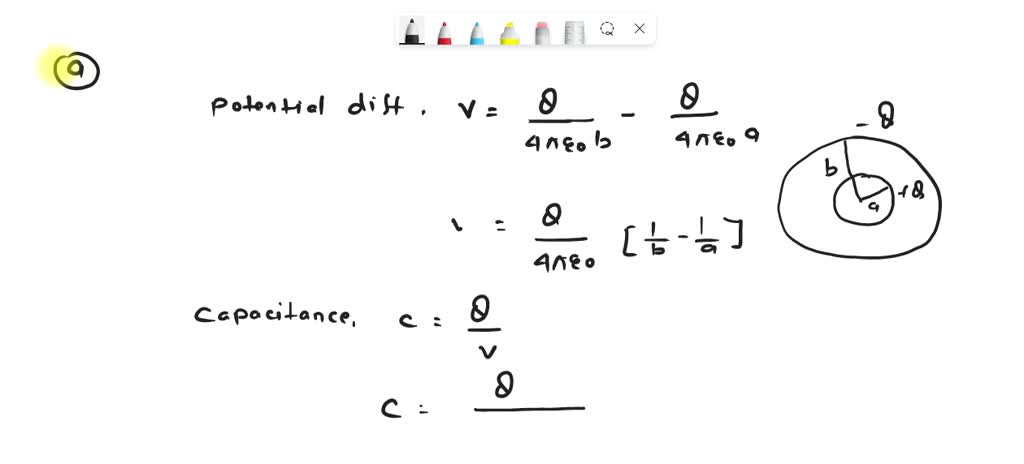 a
Potential diff. V = Q/4πε₀b - Q/4πε₀a
-Q
b
+Q
a
V = Q/4πε₀ [1/b - 1/a]
Capacitance, C = Q/V
C = Q